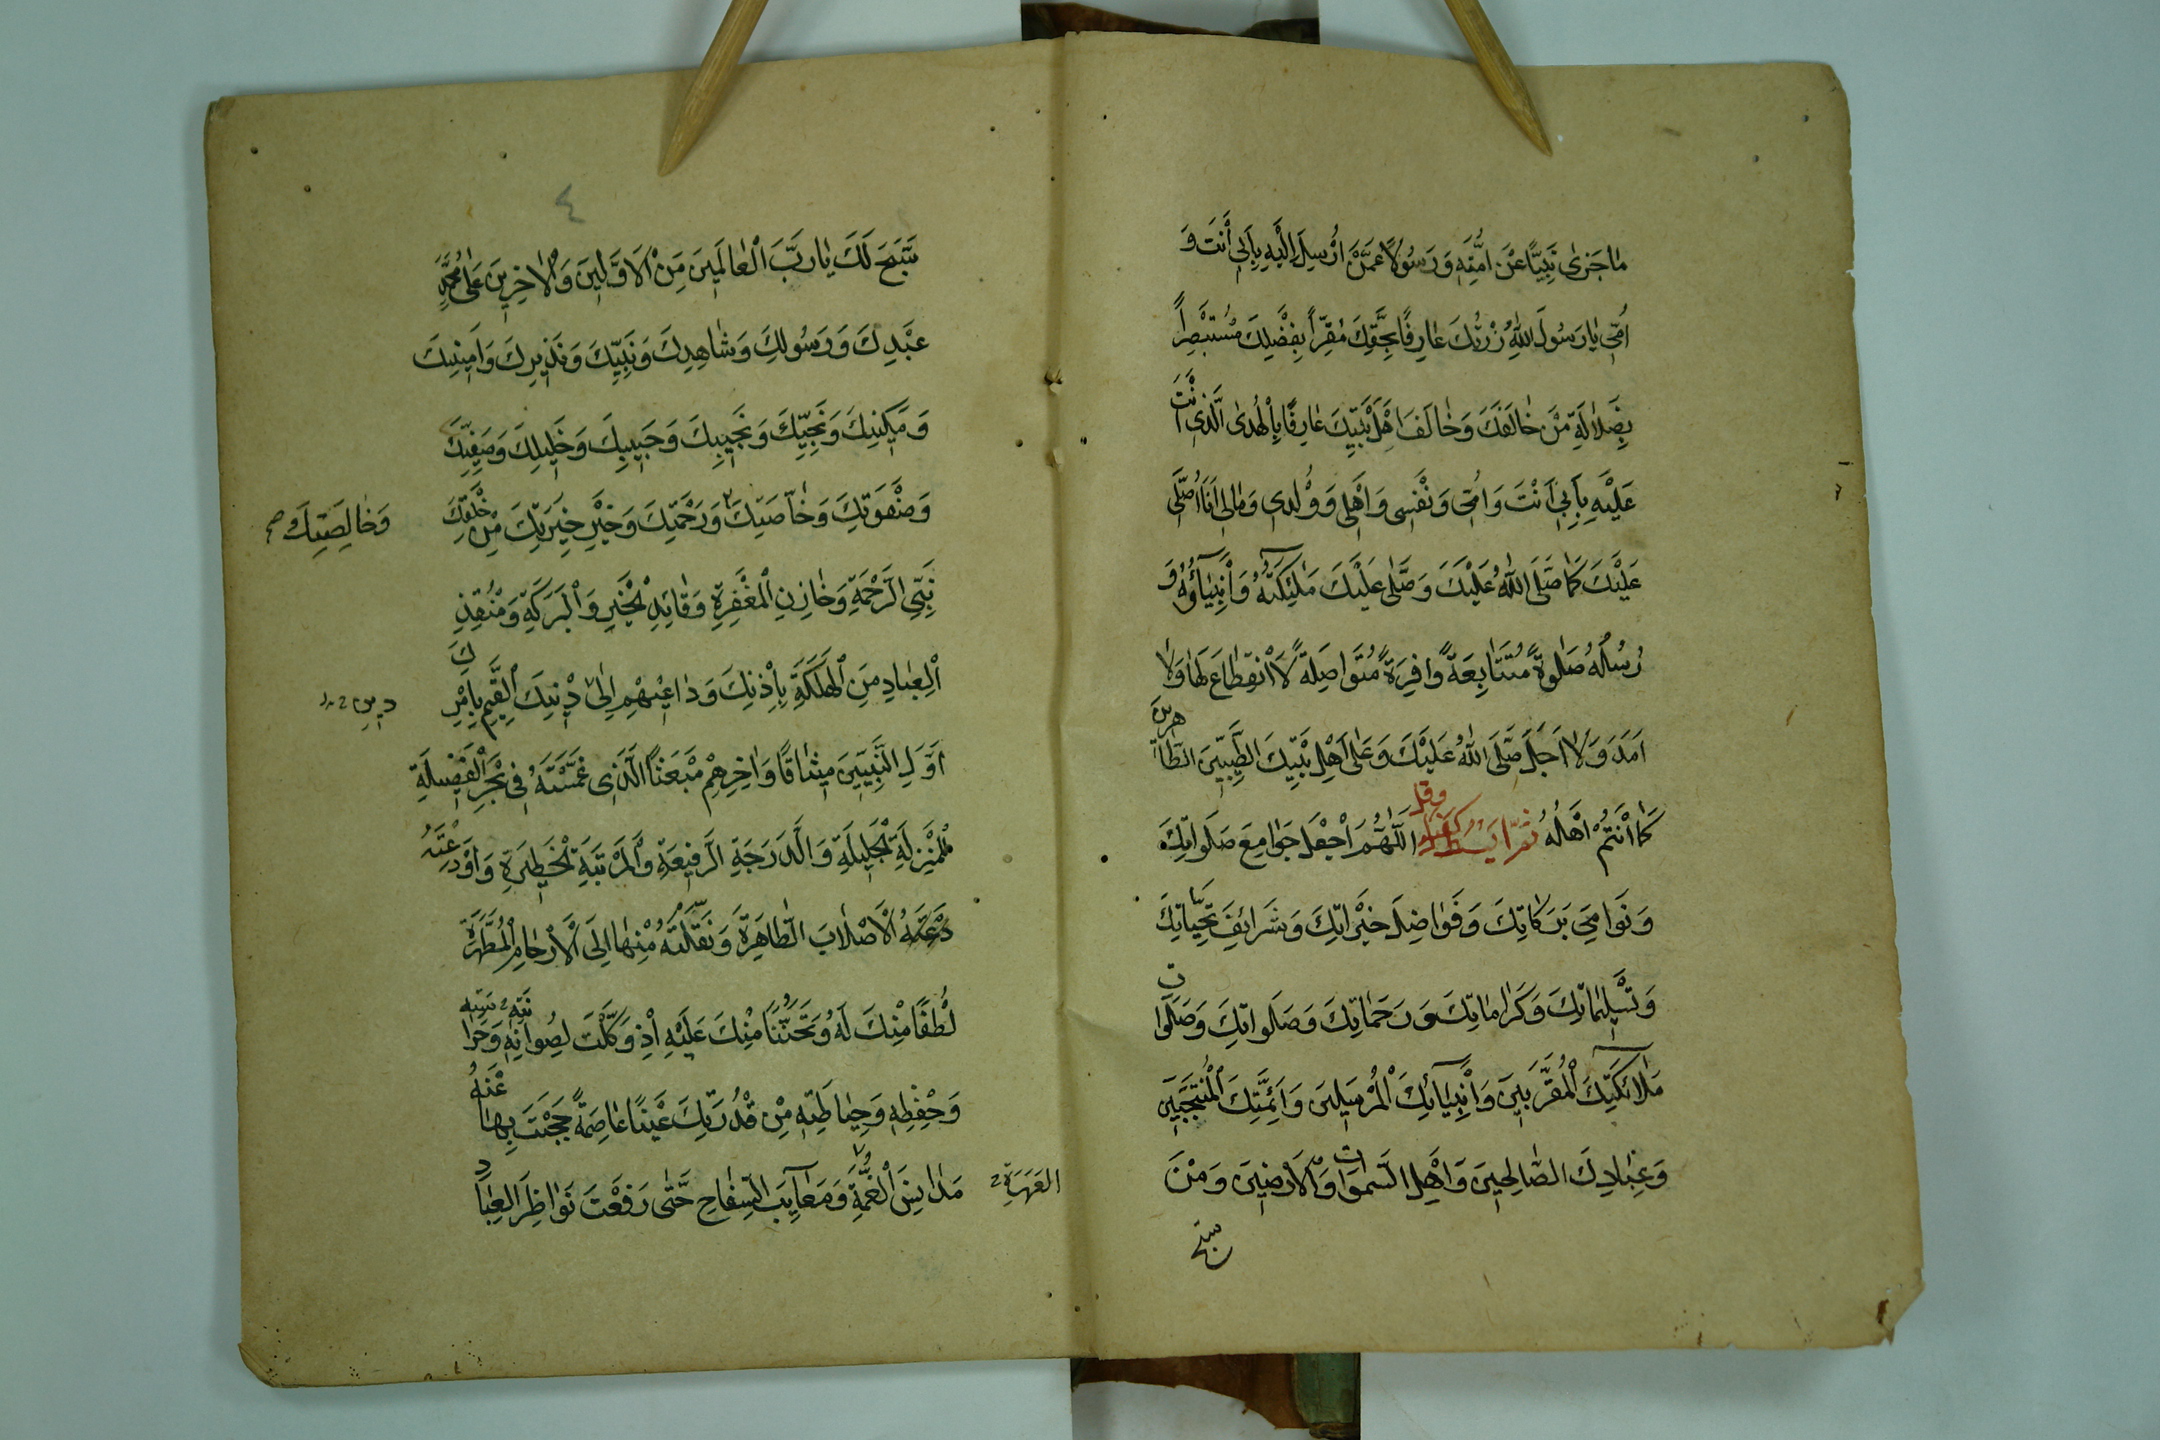 مٰا جَزىٰ نَبِيًّا عَنْ اُمَّتِهِ وَ رَسُولًا عَمَّنْ اُرْسِلَ اِلَيْهِ بِاَبِي اَنْتَ وَ
اُمّي يٰا رَسُولَ اللّٰهِ زُرْتُكَ عٰارِفًا بِحَقِّكَ مُقِرًّا بِفَضْلِكَ مُسْتَبْصِرًا
بِضَلٰالَةِ مَنْ خٰالَفَكَ وَ خٰالَفَ اَهْلَ بَيْتِكَ عٰارِفًا بِالْهُدىٰ الَّذي اَنْتَ
عَلَيْهِ بِاَبي اَنْتَ وَ اُمّي وَ نَفْسي وَ اَهْلي وَ وُلْدي وَ مٰالي اَنَا اُصَلّي
عَلَيْكَ كَمٰا صَلَّى اللّٰهُ عَلَيْكَ وَ صَلّٰى عَلَيْكَ مَلٰئِكَتُهُ وَ اَنْبِيٰآؤُهُ وَ
رُسُلُهُ صَلٰوةً مُتَتٰابِعَةً وٰافِرَةً مُتَوٰاصِلَةً لَا انْقِطٰاعَ لَهٰا وَلٰا
اَمَدَ وَ لٰا اَجَلَ صَلَّى اللّٰهُ عَلَيْكَ وَ عَلٰى اَهْلِ بَيْتِكَ الطَّيِّبينَ الطّٰاهِرينَ
كَمٰا اَنْتُمْ اَهْلُهُ ثمّ ابسط كفّيك وقل اَللّٰهُمَّ اجْعَلْ جَوٰامِعَ صَلَوٰاتِكَ
وَ نَوٰامِيَ بَرَكٰاتِكَ وَ فَوٰاضِلَ خَيْرٰاتِكَ وَ شَرٰائِفَ تَحِيّٰاتِكَ
وَ تَسْليمٰاتِكَ وَ كَرٰامٰاتِكَ وَ رَحَمٰاتِكَ وَ صَلَوٰاتِكَ وَ صَلَوٰاتِ
مَلٰائِكَتِكَ الْمُقَرَّبينَ وَ اَنْبِيٰآئِكَ الْمُرْسَلينَ وَ اَئِمَّتِكَ الْمُنْتَجَبينَ
وَ عِبٰادِكَ الصّٰالِحينَ وَ اَهْلِ السَّمٰوٰاتِ وَ الْاَرَضينَ وَ مَنْ
سبّح
٤
سَبَّحَ لَكَ يٰا رَبَّ الْعٰالَمينَ مِنَ الْاَوَّلينَ وَ الْاٰخِرينَ عَلٰى مُحَمَّدٍ
عَبْدِكَ وَ رَسُولِكَ وَ شٰاهِدِكَ وَ نَبِيِّكَ وَ نَذيرِكَ وَ اَمينِكَ
وَ مَكينِكَ وَ نَجِيِّكَ وَ نَجيبِكَ وَ حَبيبِكَ وَ خَليلِكَ وَ صَفِيِّكَ
وَ صَفْوَتِكَ وَ خٰاصَّتِكَ وَ رَحْمَتِكَ وَ خَيْرِ خِيَرَتِكَ مِنْ خَلْقِكَ
وَ خٰالِصَتِكَ صح
نَبِيِّ الرَّحْمَةِ وَ خٰازِنِ الْمَغْفِرَةِ وَ قٰائِدِ الْخَيْرِ وَ الْبَرَكَةِ وَ مُنْقِذِ
الْعِبٰادِ مِنَ الْهَلَكَةِ بِاِذْنِكَ وَ دٰاعيهِمْ اِلٰى دينِكَ الْقَيِّمِ بِاَمْرِكَ
اَوَّلِ النَّبِيّينَ ميثٰاقًا وَ اٰخِرِهِمْ مَبْعَثًا الَّذي غَمَسْتَهُ في بَحْرِ الْفَضيلَةِ
لِلْمَنْزِلَةِ الْجَليلَةِ وَ الدَّرَجَةِ الرَّفيعَةِ وَ الْمَرْتَبَةِ الْخَطيرَةِ وَ اَوْدَعْتَهُ
الْاَصْلٰابَ الطّٰاهِرَةَ وَ نَقَلْتَهُ مِنْهٰا اِلَى الْاَرْحٰامِ الْمُطَهَّرَةِ
لُطْفًا مِنْكَ لَهُ وَ تَحَنُّنًا مِنْكَ عَلَيْهِ اِذْ وَكَّلْتَ لِصَوْنِهِ وَ حَرٰاسَتِهِ
وَ حِفْظِهِ وَ حِيٰاطَتِهِ مِنْ قُدْرَتِكَ عَيْنًا عٰاصِمَةً حَجَبْتَ بِهٰا عَنْهُ
مَدٰانِسَ الْعُمَّةِ وَ مَعٰآئِبَ السِّفٰاحِ حَتّٰى رَفَعْتَ نَوٰاظِرَ الْعِبٰادِ
العَهَرَةِ